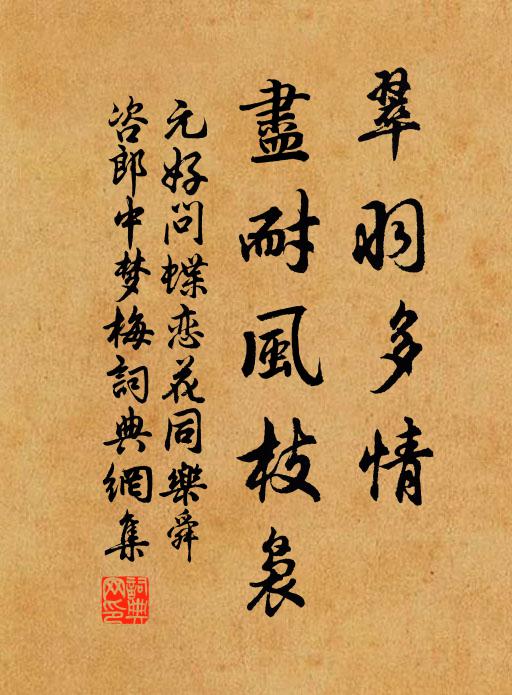 翠羽多情
盡耐風枝裊
元好问蝶恋花同樂舜
咨郎中梦梅詞典網集
詞典
网印